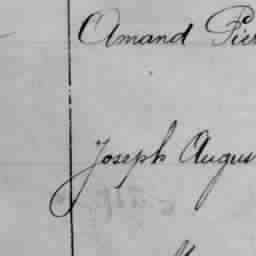 Amand Pier
Joseph Augus